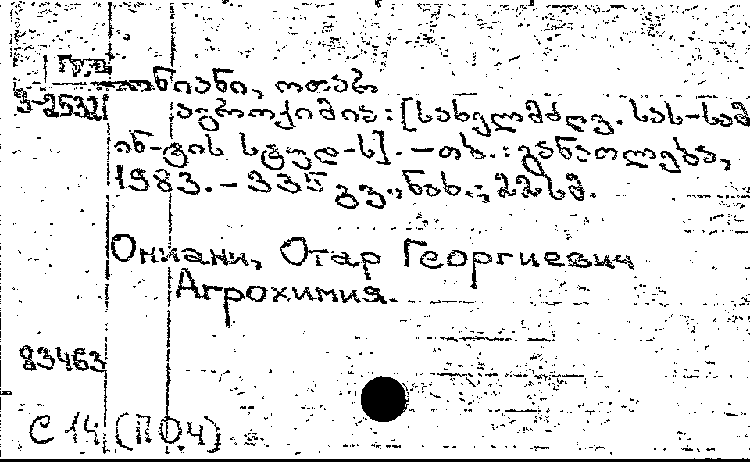 Груз
ონიანი, ოთარ
3-2532
აგროქიმია: [სახელმძღვ. სას-სამ
ინ-ტის სტუდ-ს]. – თბ.: განათლება,
1983. – 335 გვ., ნახ.; 22სმ.
Ониани, Отар Георгиевич
Агрохимия.
83463
С 14 (П04)